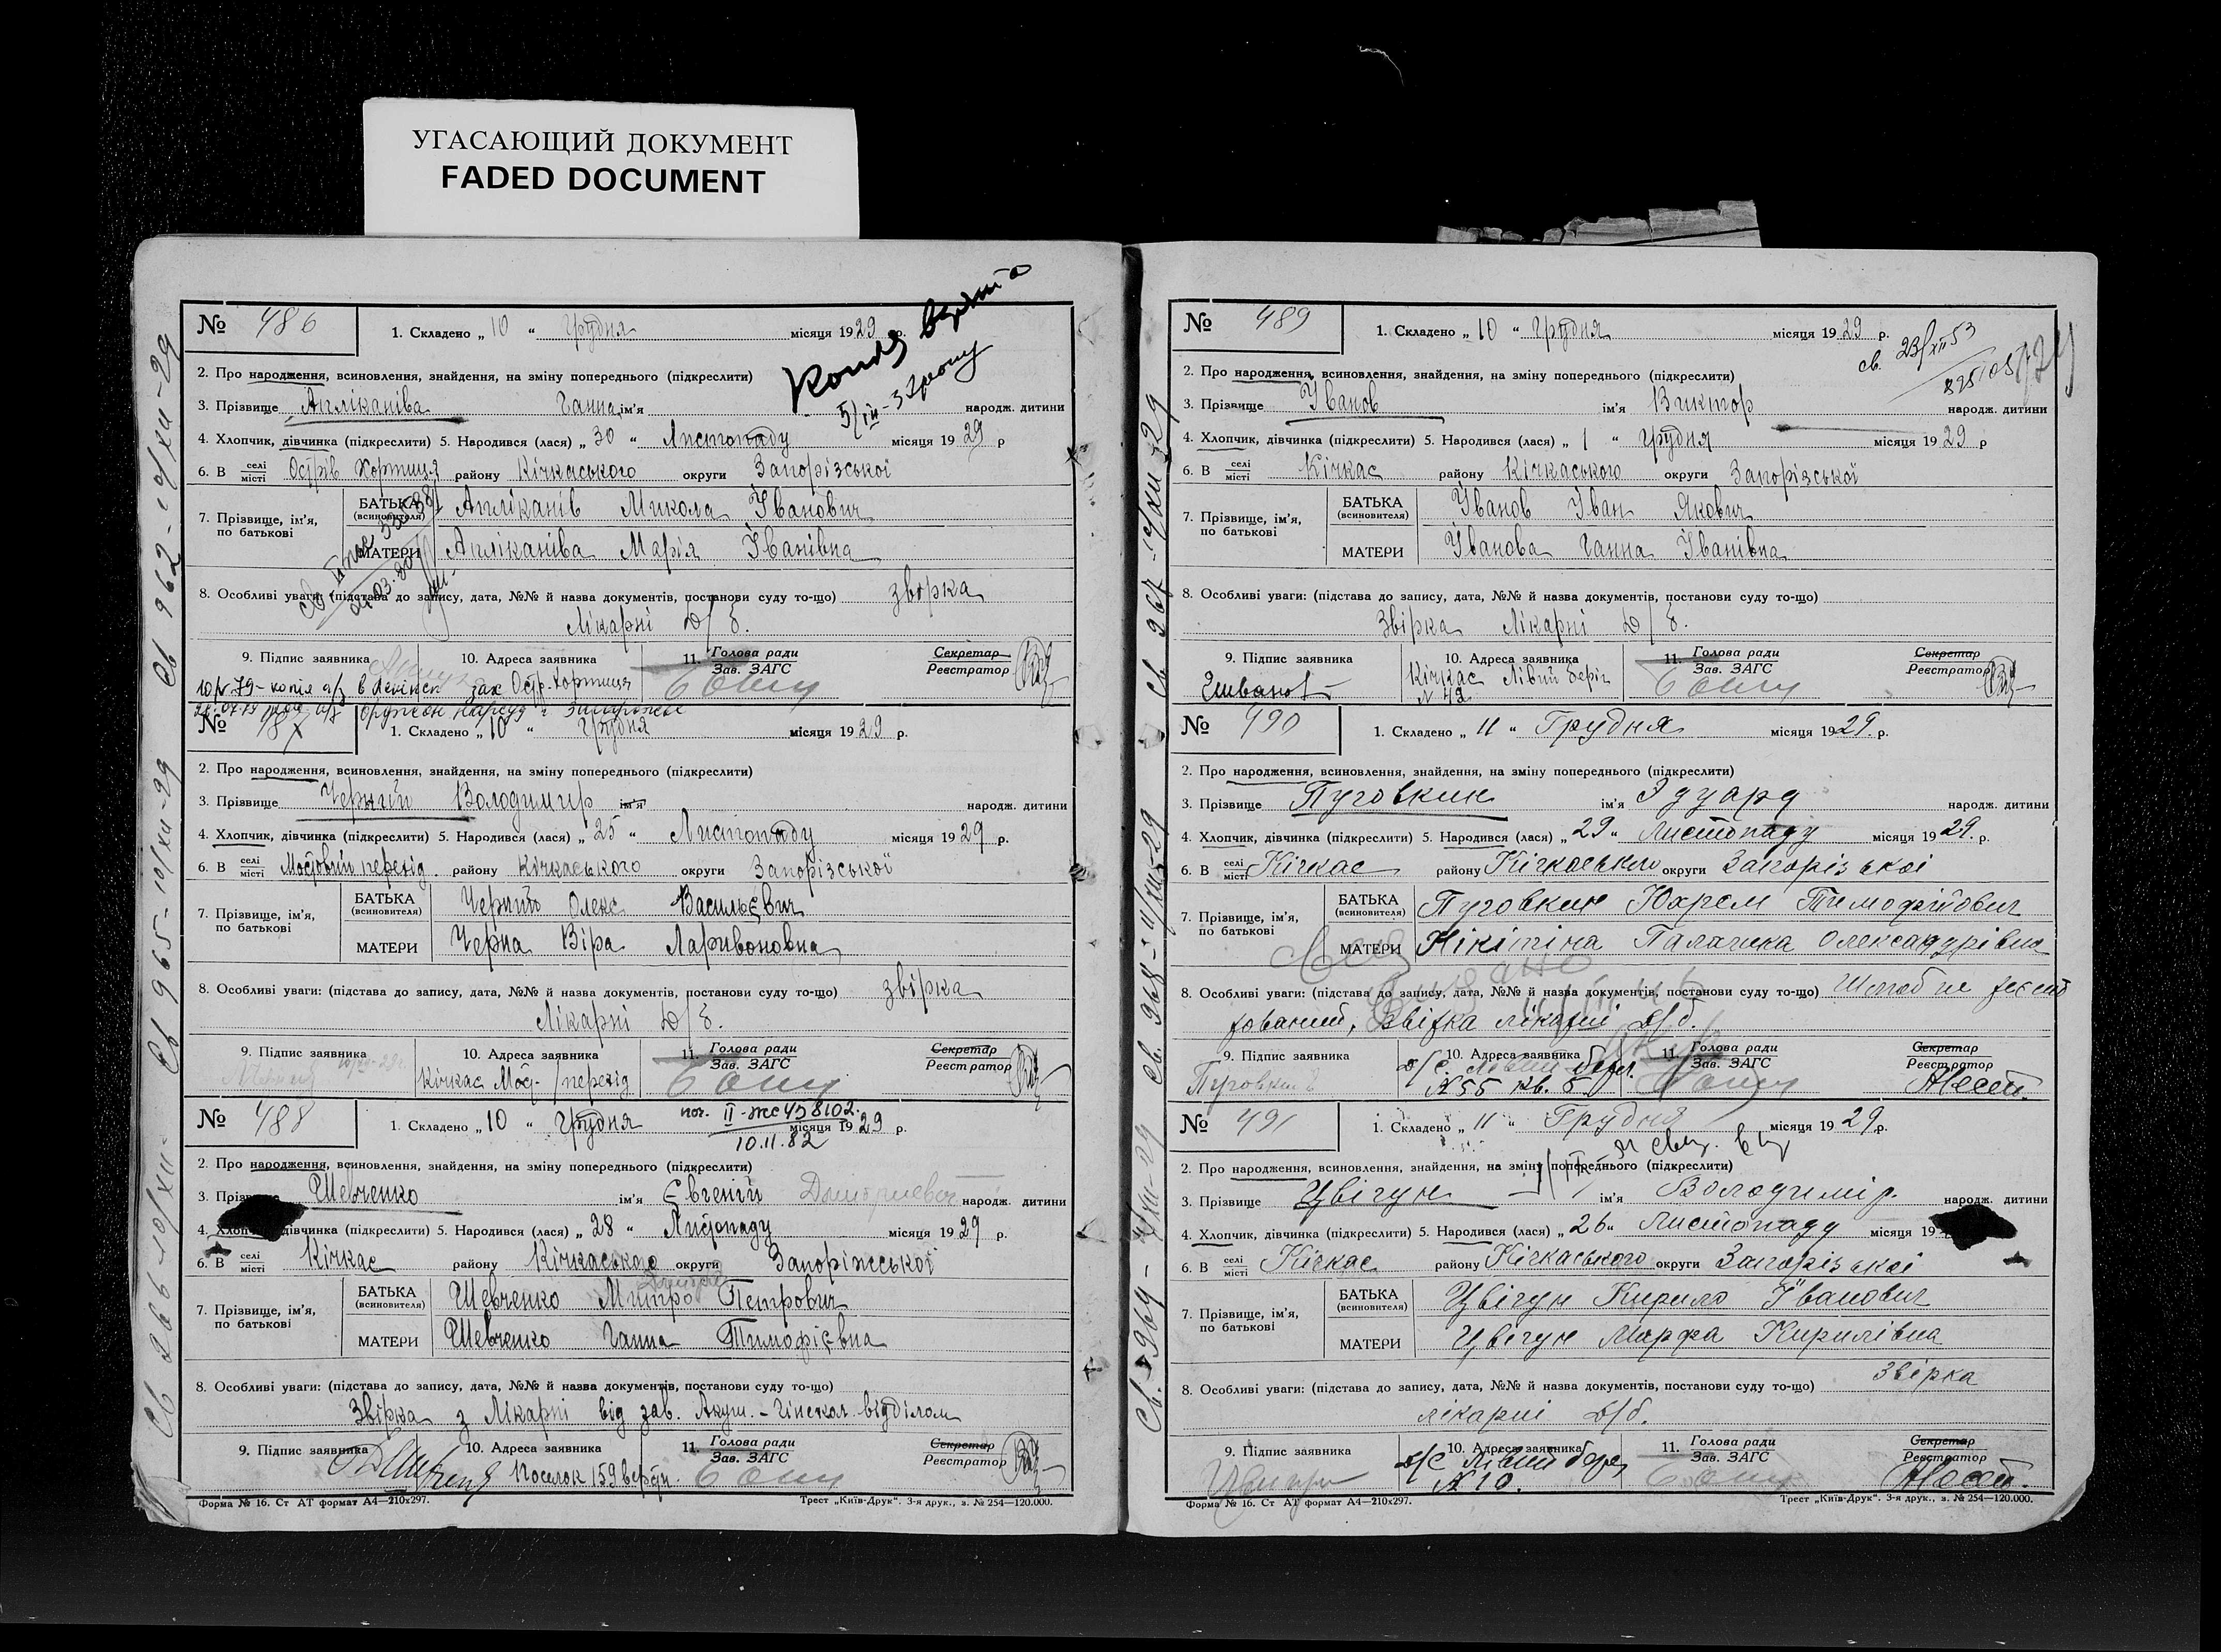 УГАСАЮЩИЙ ДОКУМЕНТ
FADED DOCUMENT
№ 486
1. Складено „ 10 “ Грудня місяця 1929 р.
2. Про народження, всиновлення, знайдення, на зміну попереднього (підкреслити)
3. Прізвище Англіканіва Ганна ім'я народж. дитини
4. Хлопчик, дівчинка (підкреслити) 5. Народився (лася) „ 30 “ Листопаду місяця 1929 р
6. В селі місті Острів Хортиця району Кічкаського округи Запорізської
7. Прізвище, ім'я, по батькові
БАТЬКА (всиновителя) Англіканів Микола Іванович
МАТЕРИ Англіканіва Марія Іванівна
8. Особливі уваги: (підстава до запису, дата, №№ й назва документів, постанови суду то-що) звірка
Лікарні Д/б.
9. Підпис заявника
10. Адреса заявника
Остр. Хортиця
11. Голова ради
Зав. ЗАГС
Секретар
Реєстратор
№ 487
1. Складено „ 10 “ Грудня місяця 1929 р.
2. Про народження, всиновлення, знайдення, на зміну попереднього (підкреслити)
3. Прізвище Черний Володимир ім'я народж. дитини
4. Хлопчик, дівчинка (підкреслити) 5. Народився (лася) „ 25 “ Листопаду місяця 1929 р.
6. В селі місті Мостовий перехід. району Кічкаського округи Запорізської
7. Прізвище, ім'я, по батькові
БАТЬКА (всиновителя) Черний Олекс Васильєвич
МАТЕРИ Черна Віра Ларивоновна
8. Особливі уваги: (підстава до запису, дата, №№ й назва документів, постанови суду то-що) звірка
Лікарні Д/б.
9. Підпис заявника
10. Адреса заявника
Кічкас Мос- /перехід
11. Голова ради
Зав. ЗАГС
Секретар
Реєстратор
№ 488
II-жс 438102
10.11.82
1. Складено „ 10 “ Грудня місяця 1929 р.
2. Про народження, всиновлення, знайдення, на зміну попереднього (підкреслити)
3. Шевченко ім'я Євгений Дмитриевич народж. дитини
4. Хлопчик, дівчинка (підкреслити) 5. Народився (лася) „ 28 “ Листопаду місяця 1929 р.
6. В селі місті Кічкас району Кічкаського округи Запоріжської
7. Прізвище, ім'я, по батькові
БАТЬКА (всиновителя) Шевченко Митро Петрович
МАТЕРИ Шевченко Ганна Тимофієвна
8. Особливі уваги: (підстава до запису, дата, №№ й назва документів, постанови суду то-що)
Звірка з Лікарні від зав. Акуш.-Гінекол. відділом
9. Підпис заявника
10. Адреса заявника
Поселок 159 верст.
11. Голова ради
Зав. ЗАГС
Секретар
Реєстратор
Форма № 16. Ст АТ формат А4—210х297.
Трест „Київ-Друк“. 3-я друк., з. № 254—120.000.
№ 489
1. Складено „ 10 “ Грудня місяця 1929 р.
св. 23/XII 53
2. Про народження, всиновлення, знайдення, на зміну попереднього (підкреслити)
3. Прізвище Іванов ім'я Виктор народж. дитини
4. Хлопчик, дівчинка (підкреслити) 5. Народився (лася) „ 1 “ Грудня місяця 1929 р
6. В селі місті Кічкас району Кічкаського округи Запорізської
7. Прізвище, ім'я, по батькові
БАТЬКА (всиновителя) Іванов Іван Якович
МАТЕРИ Іванова Ганна Іванівна
8. Особливі уваги: (підстава до запису, дата, №№ й назва документів, постанови суду то-що)
Звірка Лікарні Д/б.
9. Підпис заявника
10. Адреса заявника
Кічкас Лівий беріг
N 42
11. Голова ради
Зав. ЗАГС
Секретар
Реєстратор
№ 490
1. Складено „ 11 “ Грудня місяця 1929. р.
2. Про народження, всиновлення, знайдення, на зміну попереднього (підкреслити)
3. Прізвище Пуговкин ім'я Эдуард народж. дитини
4. Хлопчик, дівчинка (підкреслити) 5. Народився (лася) „ 29 “ Листопаду місяця 1929. р.
6. В селі місті Кічкас району Кічкаського округи Запорізської
7. Прізвище, ім'я, по батькові
БАТЬКА (всиновителя) Пуговкин Юхрем Тимофійович
МАТЕРИ Нікітіна Палажка Олександрівна
8. Особливі уваги: (підстава до запису, дата, №№ й назва документів, постанови суду то-що) Шлюб не реєст
рований, Звірка лікарні Д/б.
9. Підпис заявника
Пуговкин
10. Адреса заявника
Д/С. Лівий берег.
№ 55 кв. 5
11. Голова ради
Зав. ЗАГС
Секретар
Реєстратор
№ 491
1. Складено „ 11 “ Грудня місяця 1929 р.
2. Про народження, всиновлення, знайдення, на зміну попереднього (підкреслити)
3. Прізвище Цвігун ім'я Володимір. народж. дитини
4. Хлопчик, дівчинка (підкреслити) 5. Народився (лася) „ 26 “ Листопаду місяця 19
6. В селі місті Кічкас району Кічкаського округи Запорізської
7. Прізвище, ім'я, по батькові
БАТЬКА (всиновителя) Цвігун Кирило Іванович
МАТЕРИ Цвігун Марфа Кирилівна
8. Особливі уваги: (підстава до запису, дата, №№ й назва документів, постанови суду то-що) Звірка
лікарні Д/б.
9. Підпис заявника
10. Адреса заявника
Д/С Лівий берег
№ 10.
11. Голова ради
Зав. ЗАГС
Секретар
Реєстратор
Форма № 16. Ст АТ формат А4—210х297.
Трест „Київ-Друк“. 3-я друк., з. № 254—120.000.